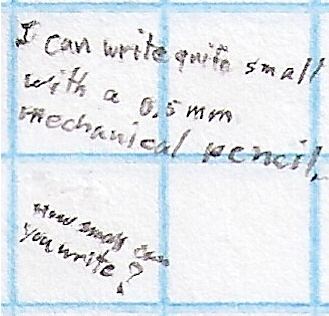 I can write quite small
with a 0.5mm
mechanical pencil.
How small can
you write?